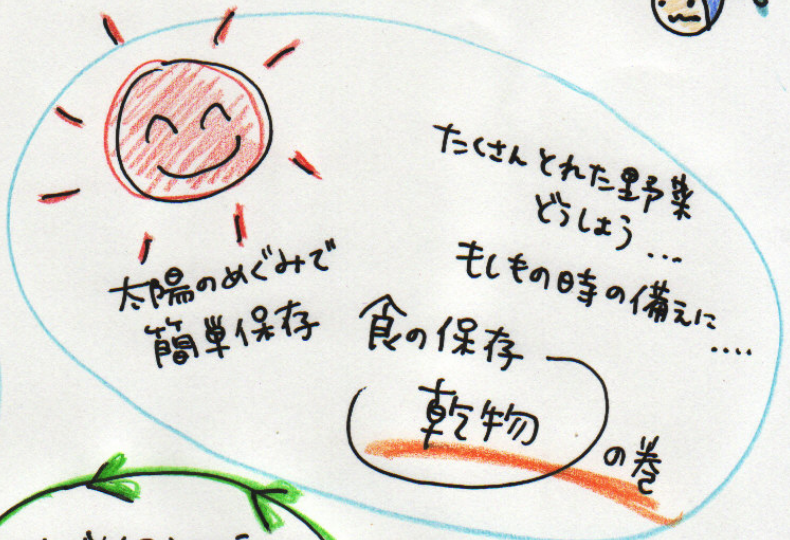 たくさんとれた野菜
どうしよう…
もしもの時の備えに
‥‥
太陽のめぐみで
簡単保存
食の保存
乾物
の巻